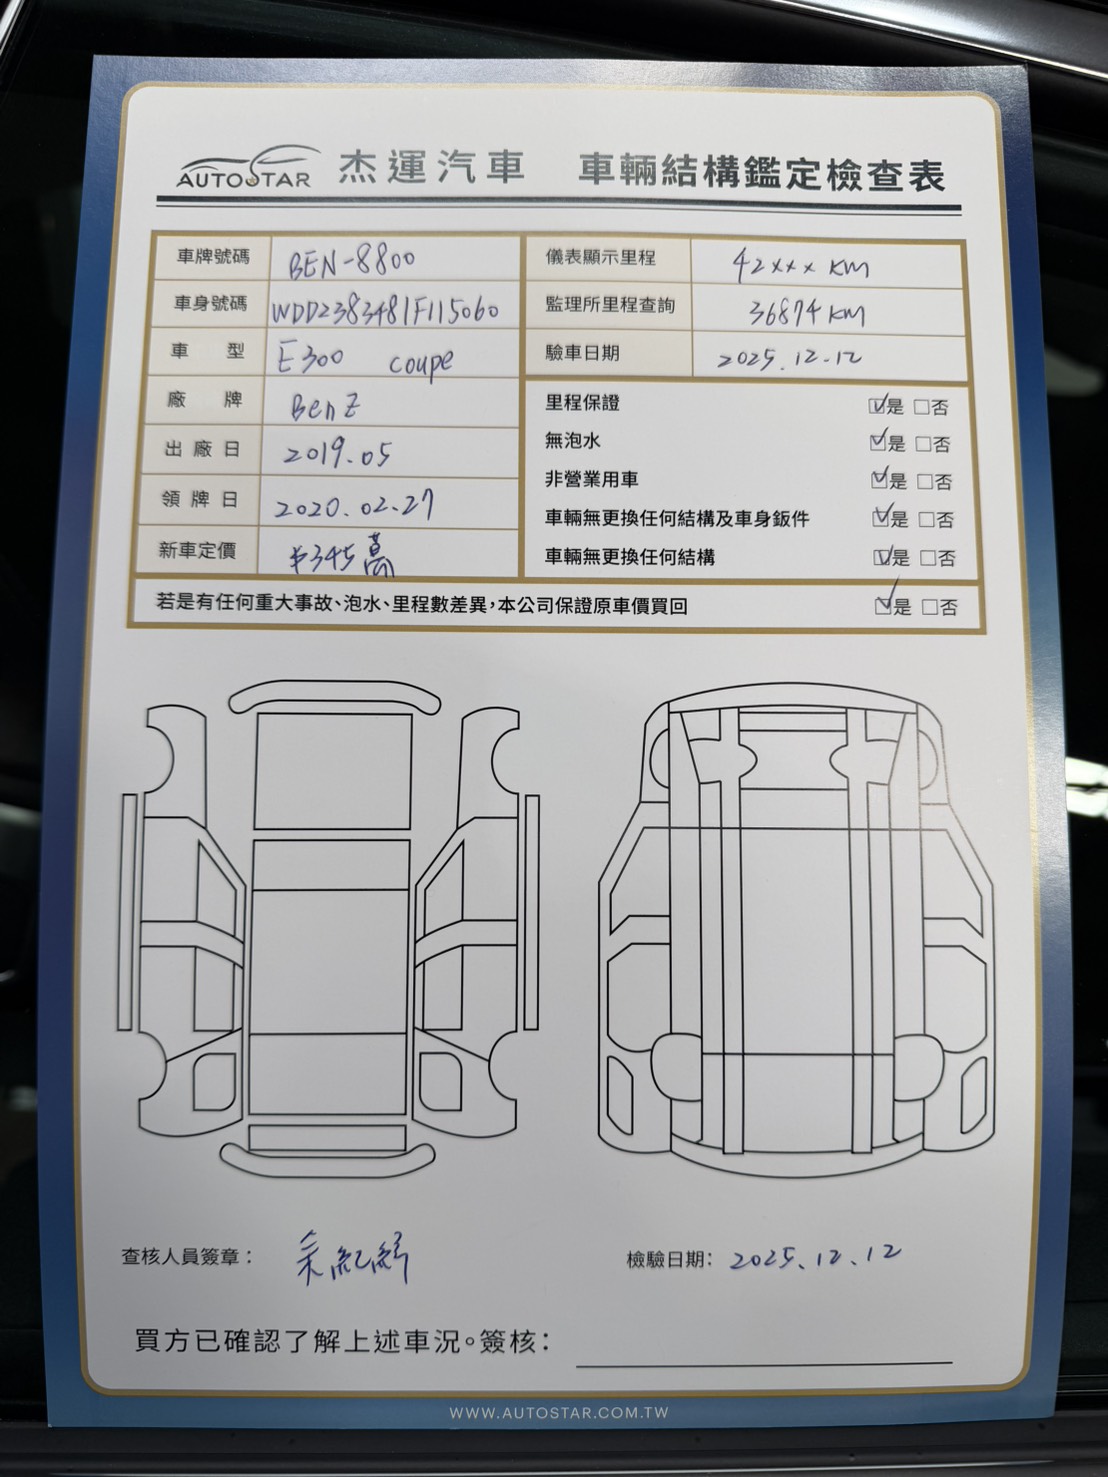 AUTOSTAR 杰運汽車 車輛結構鑑定檢查表
車牌號碼 BEN-8800
車身號碼 WDD2383481F115060
車型 E300 coupe
廠牌 BenZ
出廠日 2019.05
領牌日 2020.02.27
新車定價 $345萬
儀表顯示里程 42xxx KM
監理所里程查詢 36874 KM
驗車日期 2025.12.12
里程保證 ☑是 □否
無泡水 ☑是 □否
非營業用車 ☑是 □否
車輛無更換任何結構及車身鈑件 ☑是 □否
車輛無更換任何結構 ☑是 □否
若是有任何重大事故、泡水、里程數差異,本公司保證原車價買回 ☑是 □否
查核人員簽章：
檢驗日期: 2025.12.12
買方已確認了解上述車況。簽核：
WWW.AUTOSTAR.COM.TW